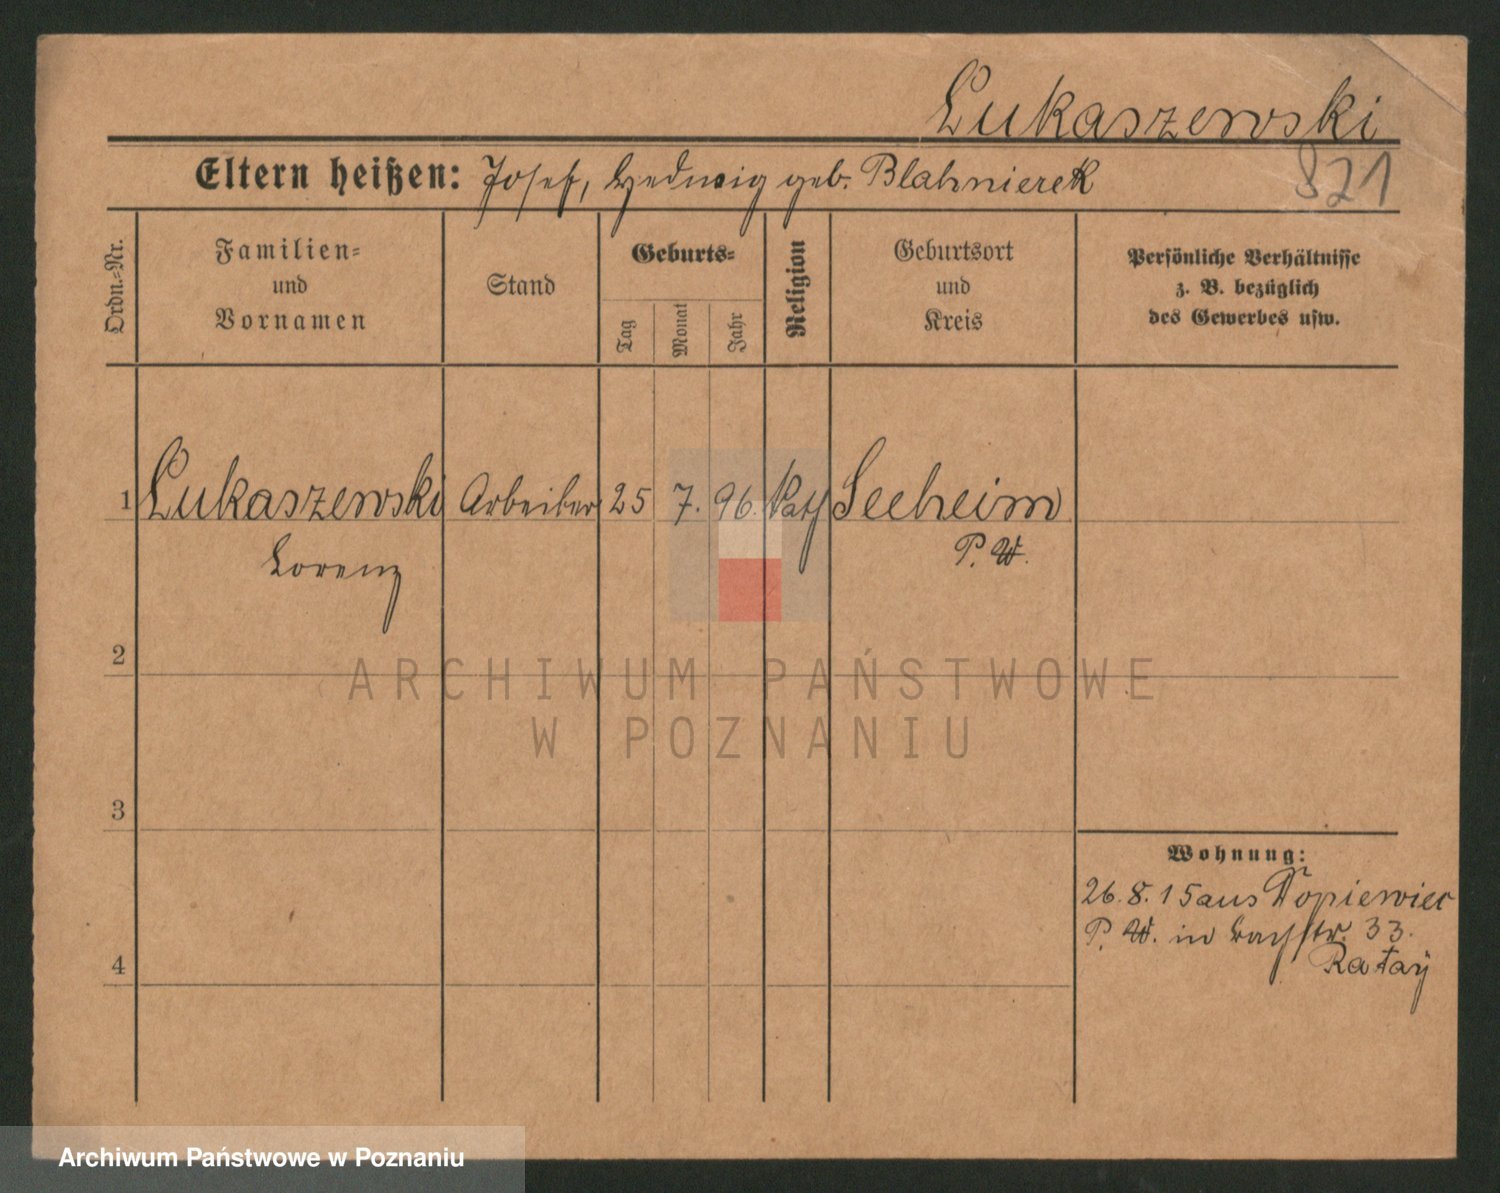 Lukaszewski
Eltern heißen: Josef, Hedwig geb. Blahnierek
821
Ordn.-Nr.
Familien-
und
Vornamen
Stand
Geburts-
Tag
Monat
Jahr
Religion
Geburtsort
und
Kreis
Persönliche Verhältnisse
z. B. bezüglich
des Gewerbes usw.
1 Lukaszewski Arbeiter 25 7. 96. Kath Seeheim
Lorenz P. W.
2
3
4
Wohnung:
26. 8. 15 aus Dopiewiec
P. W. in Bachstr. 33.
Ratay
ARCHIWUM PAŃSTWOWE
W POZNANIU
Archiwum Państwowe w Poznaniu